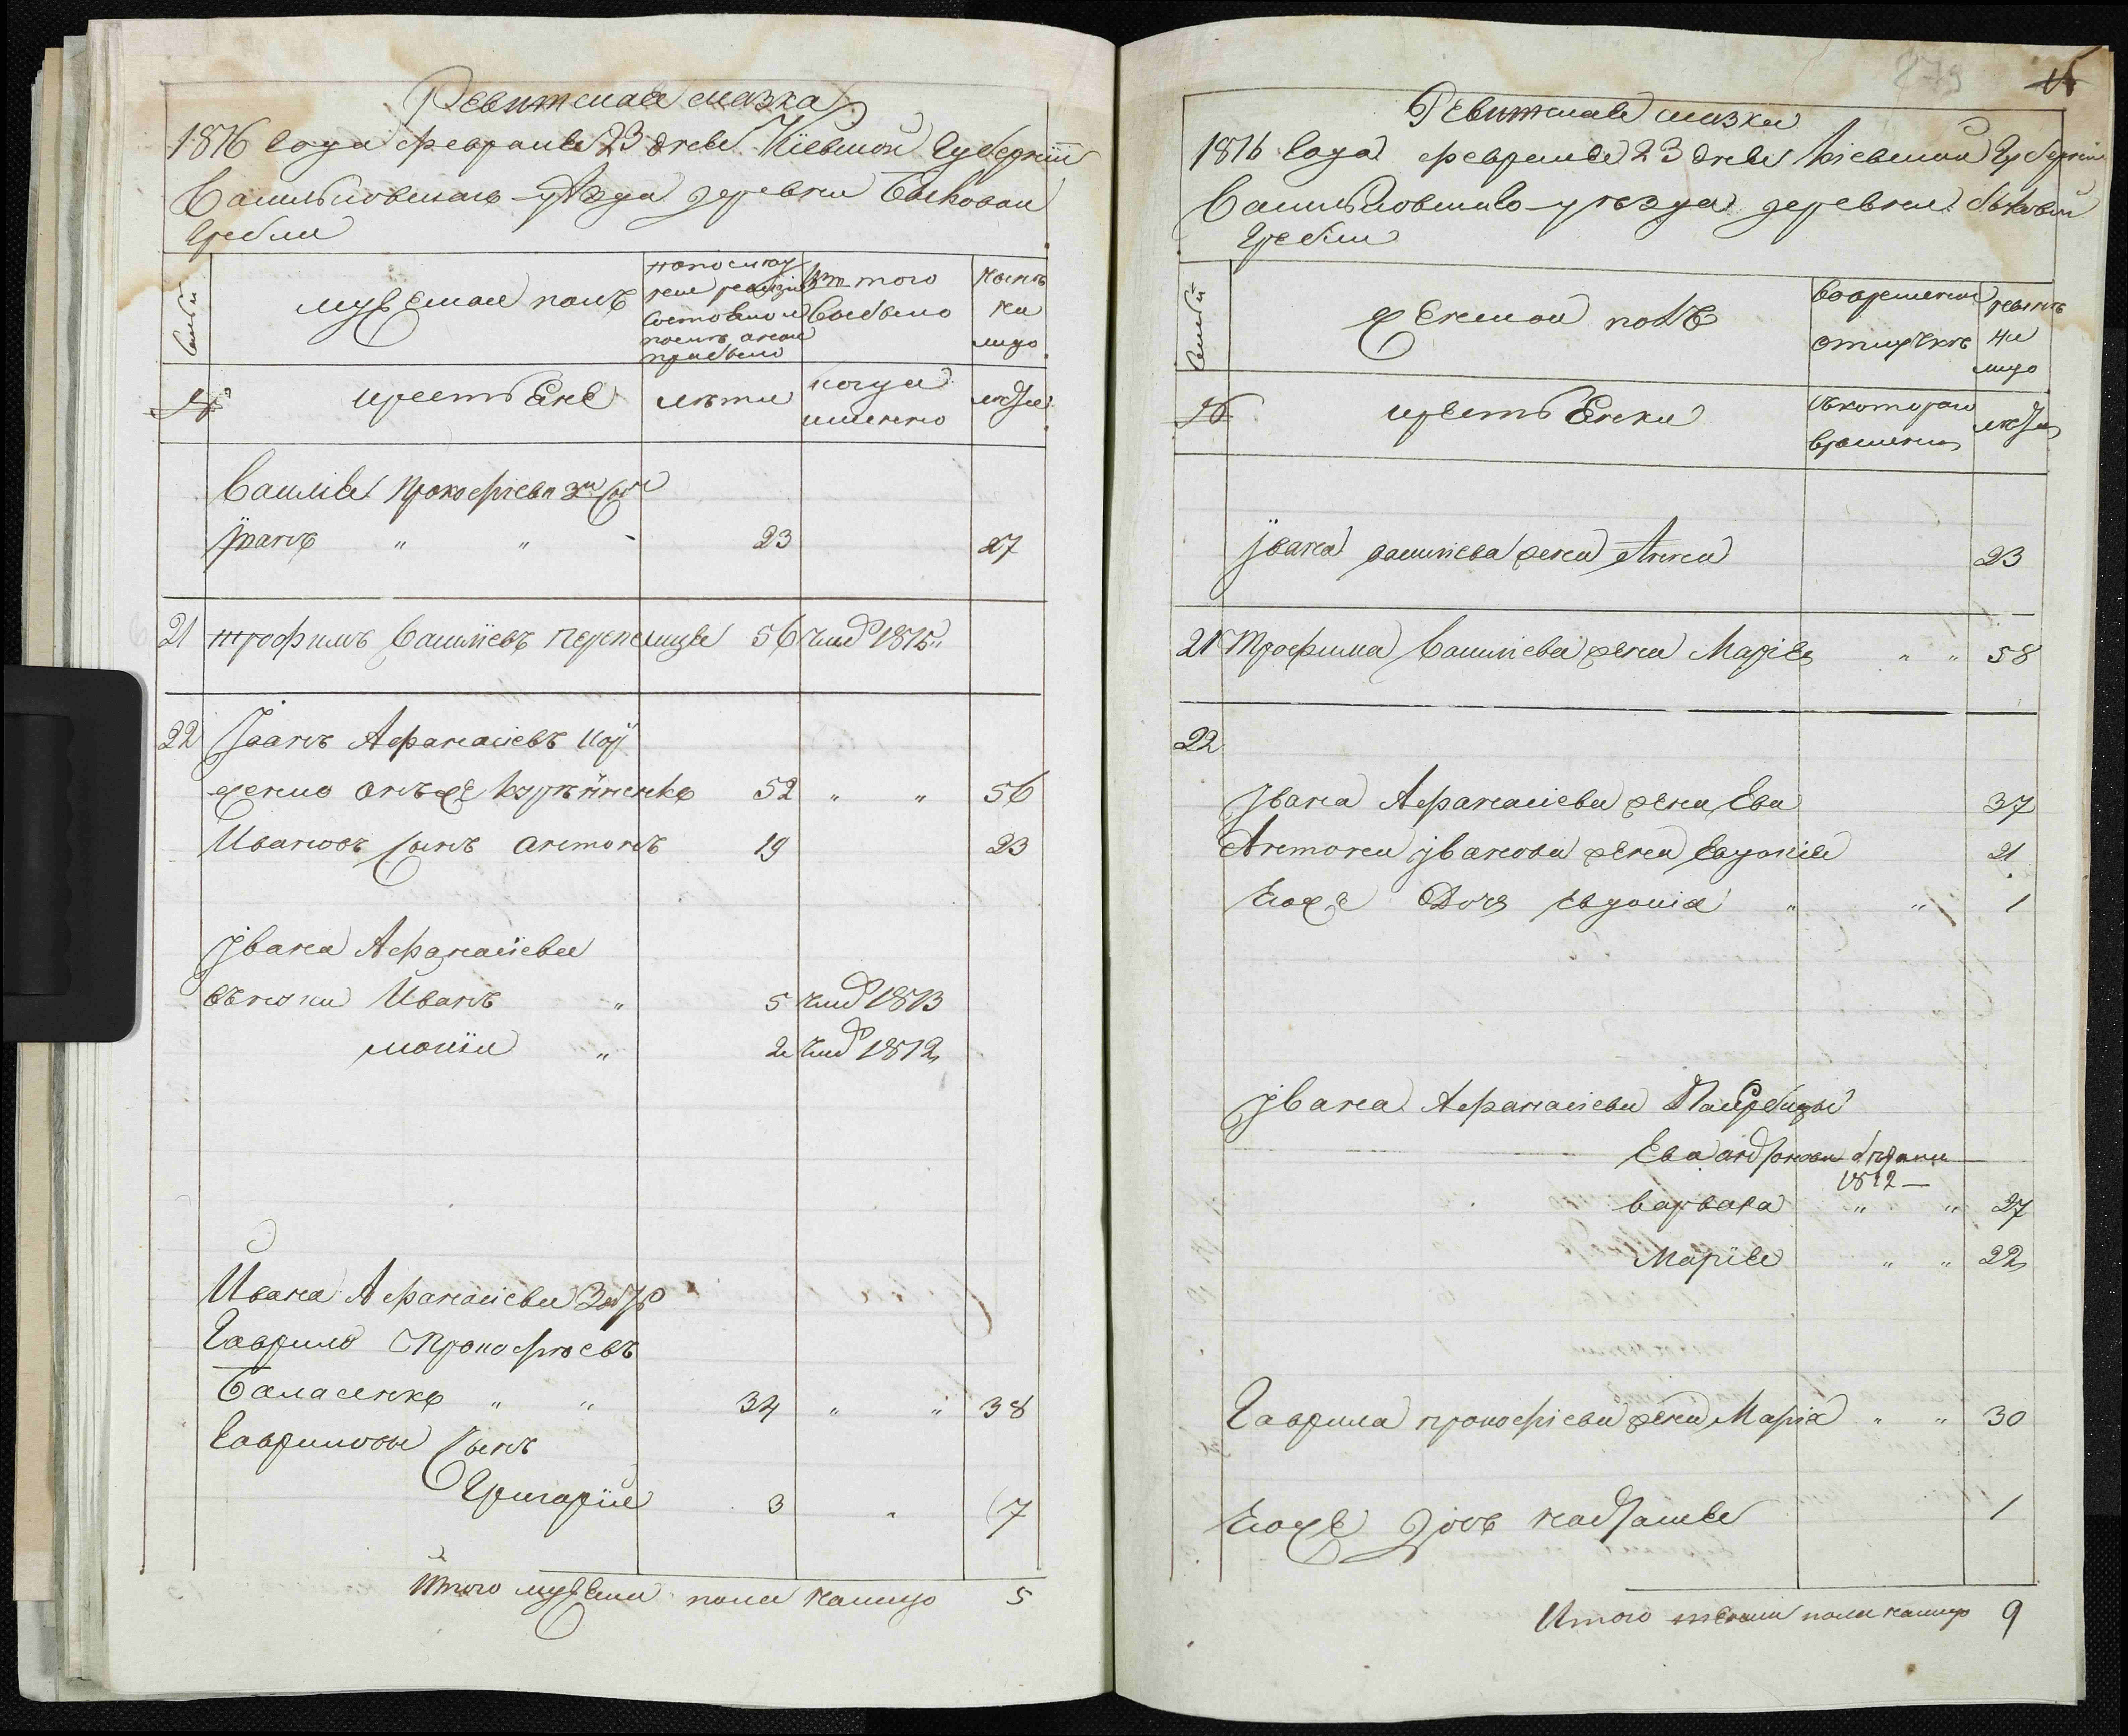 Ревижская сказка
1816 года февраля 23 дня Кіевской Губерніи
Василковскаго уѣзда деревни Быковой
Гребли
Семьи
мужеской полъ
по послед
ней ревизіи
состояло и
послѣ оной
прибыло
изъ того
выбыло
нынѣ
на
лицо
крестьяне
лѣта
когда
именно
лѣта
Василія Прокофіева 3й сынъ
Іванъ " " 23 27
21 трофимъ Василіевъ перепелица 56 умр 1815
22 Іванъ Афанасіевъ кор
женко онъже 52 " " 56
Ивановъ сынъ антонъ 19 23
Івана Афанасіева
внуки Иванъ " 5 умр 1813
" 2 умр 1812
Ивана Афанасіева Зять
Гаврило Прокофіевъ
Баласенко " " 34 " " 38
Гавриловъ сынъ
Григорій 3 " 7
Итого мужеска пола налицо 5
879
15
Ревижская сказка
1816 года февраля 23 дня Кіевской Губерніи
Василковскаго уѣзда деревни быковой
Гребли
Семьи
женской полъ
во временной
отлучкѣ
нынѣ
на
лицо
крестьянки
съ котораго
времени
лѣта
Івана василіева жена Анна 23
21 Трофима Василіева жена Марія " " 58
22
Івана Афанасіева жена Ева 37
Антона івановa жена Евдокія 21
Егоже Дочь Евдокія " " 1
Івана Афанасіева Падчерицы
Ева
1812
варвара " " 27
Марія " " 22
Гаврила прокофіева жена Марія " " 30
Егоже дочь 1
Итого женска пола налицо 9